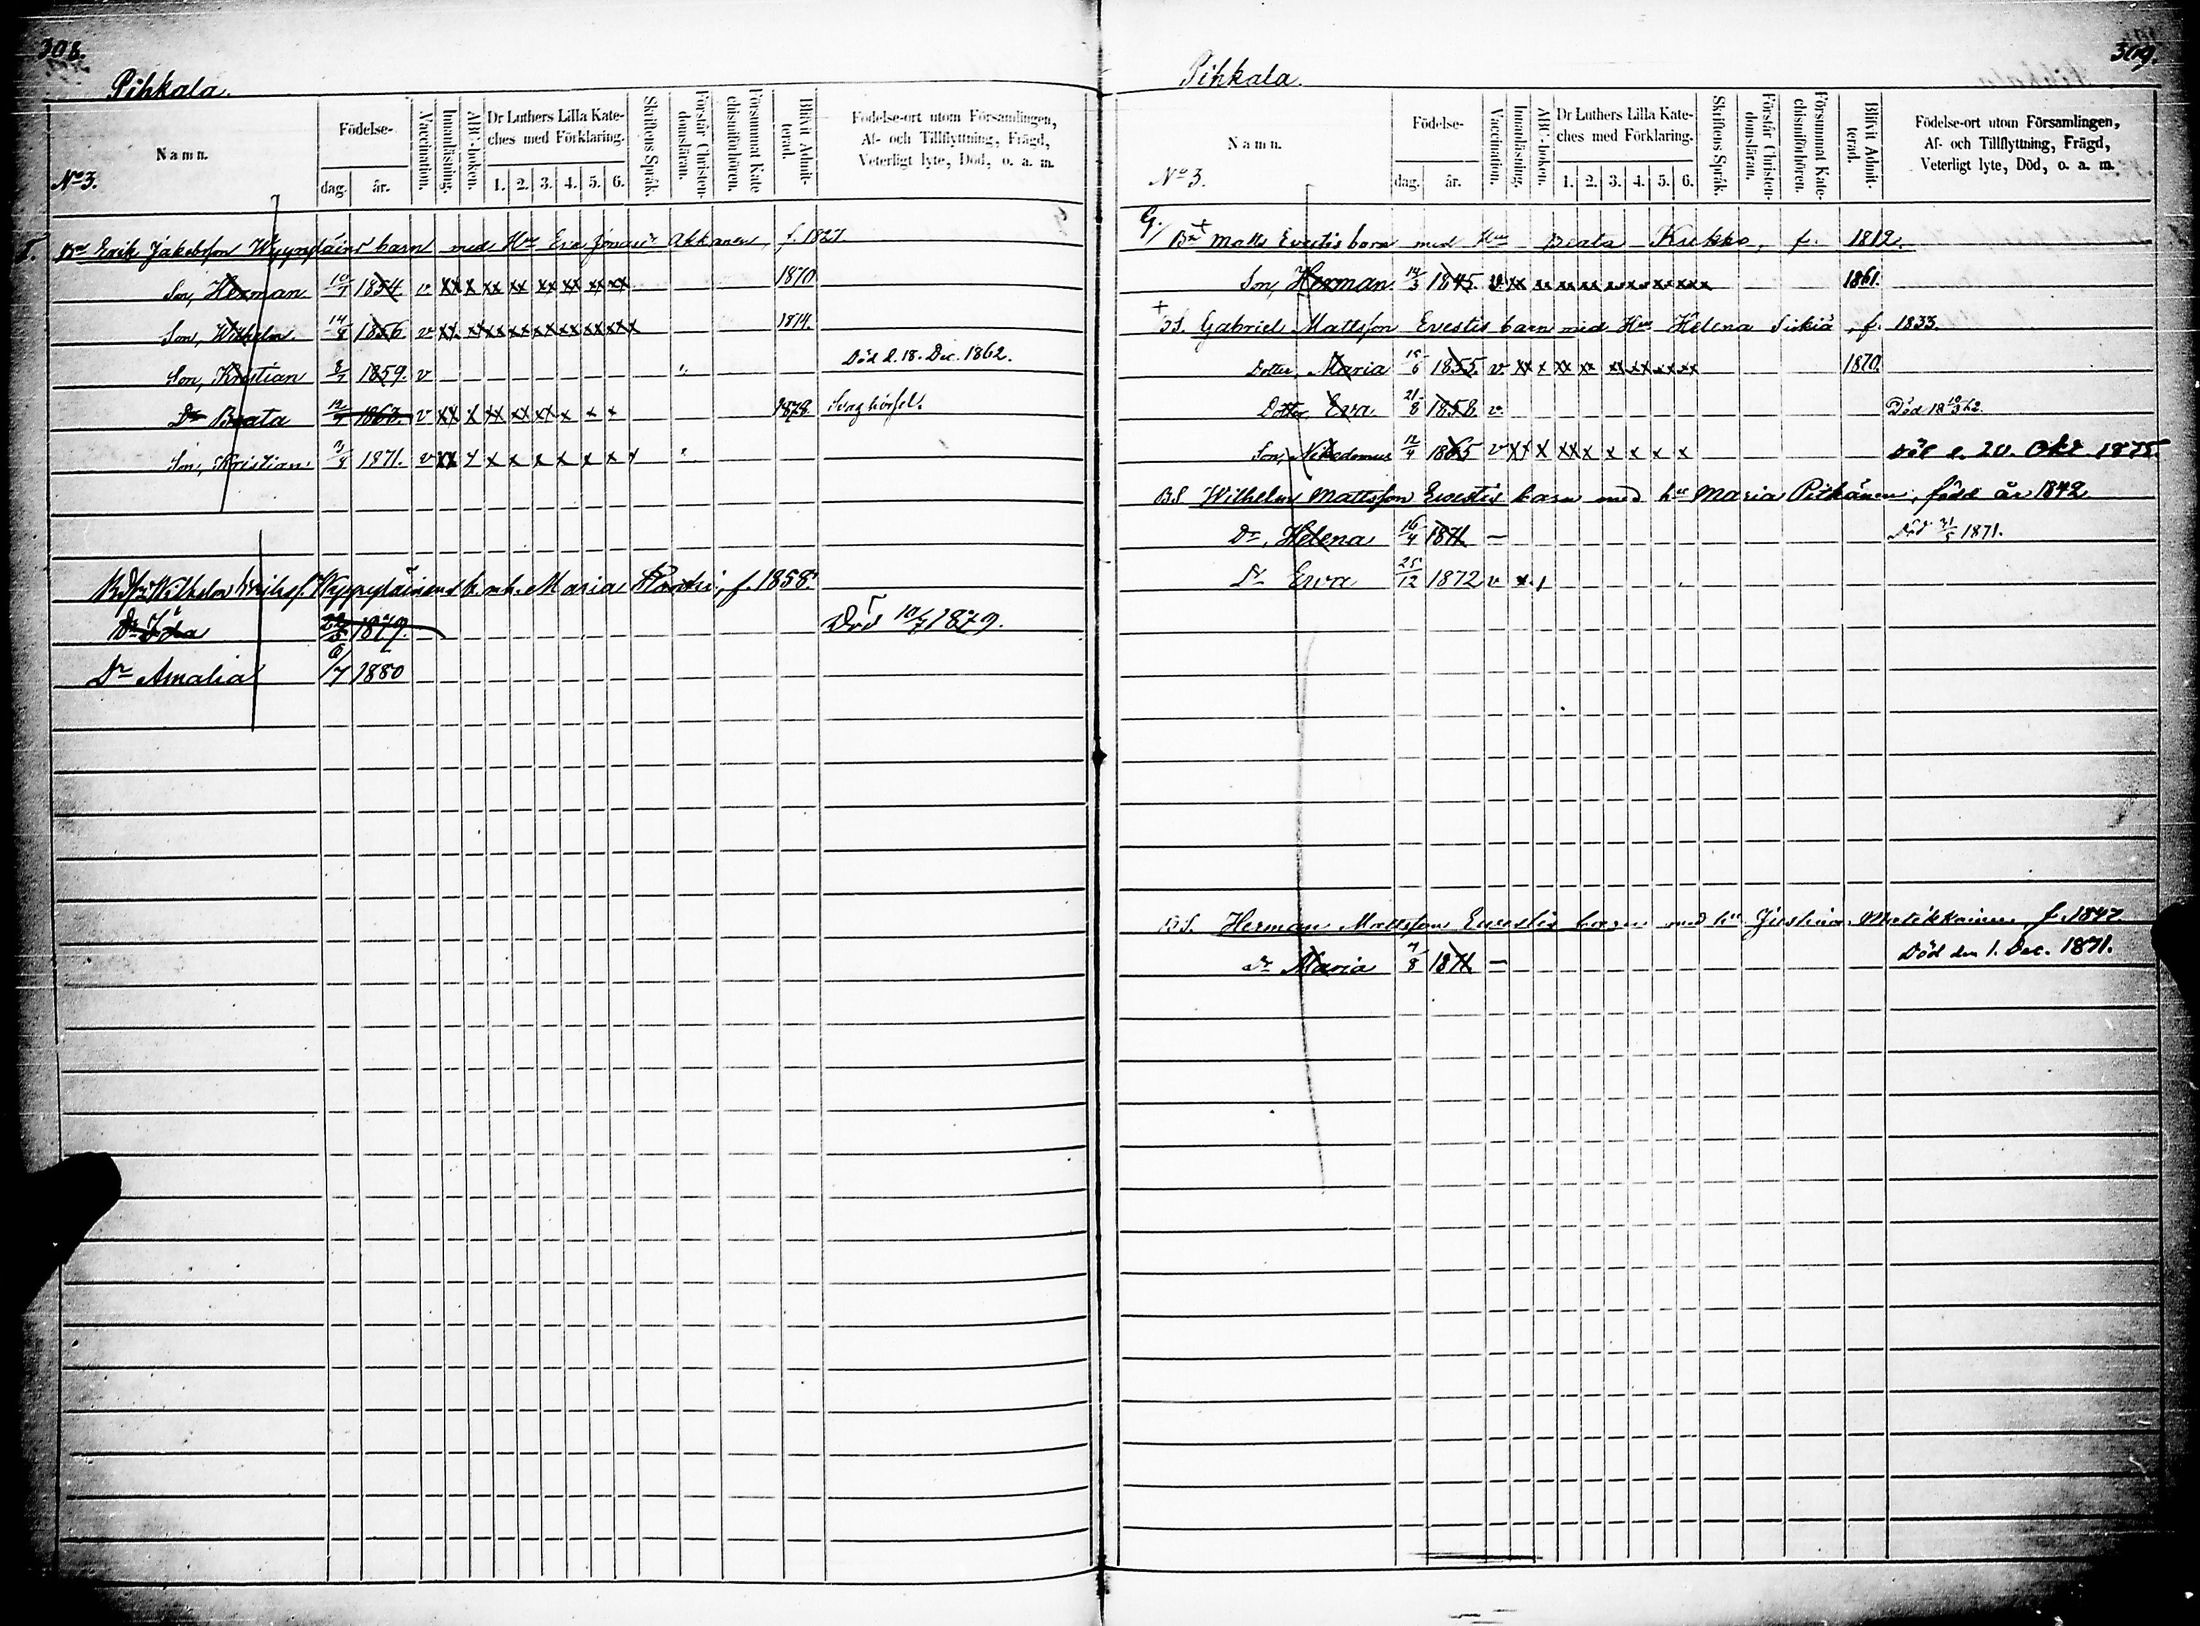 308.
Pihkala.
Namn.
Födelse-
dag. år.
Vaccination.
Innanläsning.
ABC-boken.
Dr Luthers Lilla Kate-
ches med Förklaring.
1. 2. 3. 4. 5. 6.
Skriftens Språk.
Förstår Christen-
domsläran.
Försummat Kate-
chismiförhören.
Blivit Admit-
terad.
Födelse-ort utom Församlingen,
Af- och Tillflyttning, Frägd,
Veterligt lyte, Död, o. a. m.
No 3.
Bn Erik Jakobsson barn med Hu Eva Akkanen, f. 1827.
Son, Herman 1854 v xx x xx xx xx xx xx xx 1870
Son, Wilhelm 14/8 1856 v 1874.
Son, Kristian 8/7 1859. v Död d. 18. Dec. 1862.
Dr Beata 1863. v xx x xx xx xx x x x 1878 Svag hörsel.
Son, Kristian 1871. v xx x x x x x x x
Wilhelm Maria f. 1858.
Dr 22/5 1879. Död 10/7 1879.
Dr Amalia 6/7 1880
309.
Pihkala.
Namn.
Födelse-
dag. år.
Vaccination.
Innanläsning.
ABC-boken.
Dr Luthers Lilla Kate-
ches med Förklaring.
1. 2. 3. 4. 5. 6.
Skriftens Språk.
Förstår Christen-
domsläran.
Försummat Kate-
chismiförhören.
Blivit Admit-
terad.
Födelse-ort utom Församlingen,
Af- och Tillflyttning, Frägd,
Veterligt lyte, Död, o. a. m.
No 3.
G. Bn Matts Evestis barn med Hu Beata Kukko, f. 1812.
Son, Herman 14/3 1845. v. 1861.
Gabriel Mattsson Evestis barn med Hu Helena Siskiä, f. 1833.
Dotter, Maria 15/6 1855. v. xx x xx xx xx xx xx xx 1870.
Dotter Eva 21/8 1858 v. Död 18 10/3 62.
Son, Nikodemus 12/4 1865 v xx x xx x x x x x Död d. 20. Okt. 1875.
BS Wilhelm Mattsson Evestis barn med hu Maria Pitkänen, född år 1842
Dr, Helena 16/4 1871 – Död 31/5 1871.
Dr Ewa 25/12 1872 v x
BS. Herman Mattsson Ewestis barn med hu Justina f. 1847
Dr Maria 7/8 1871 – Död den 1. Dec. 1871.